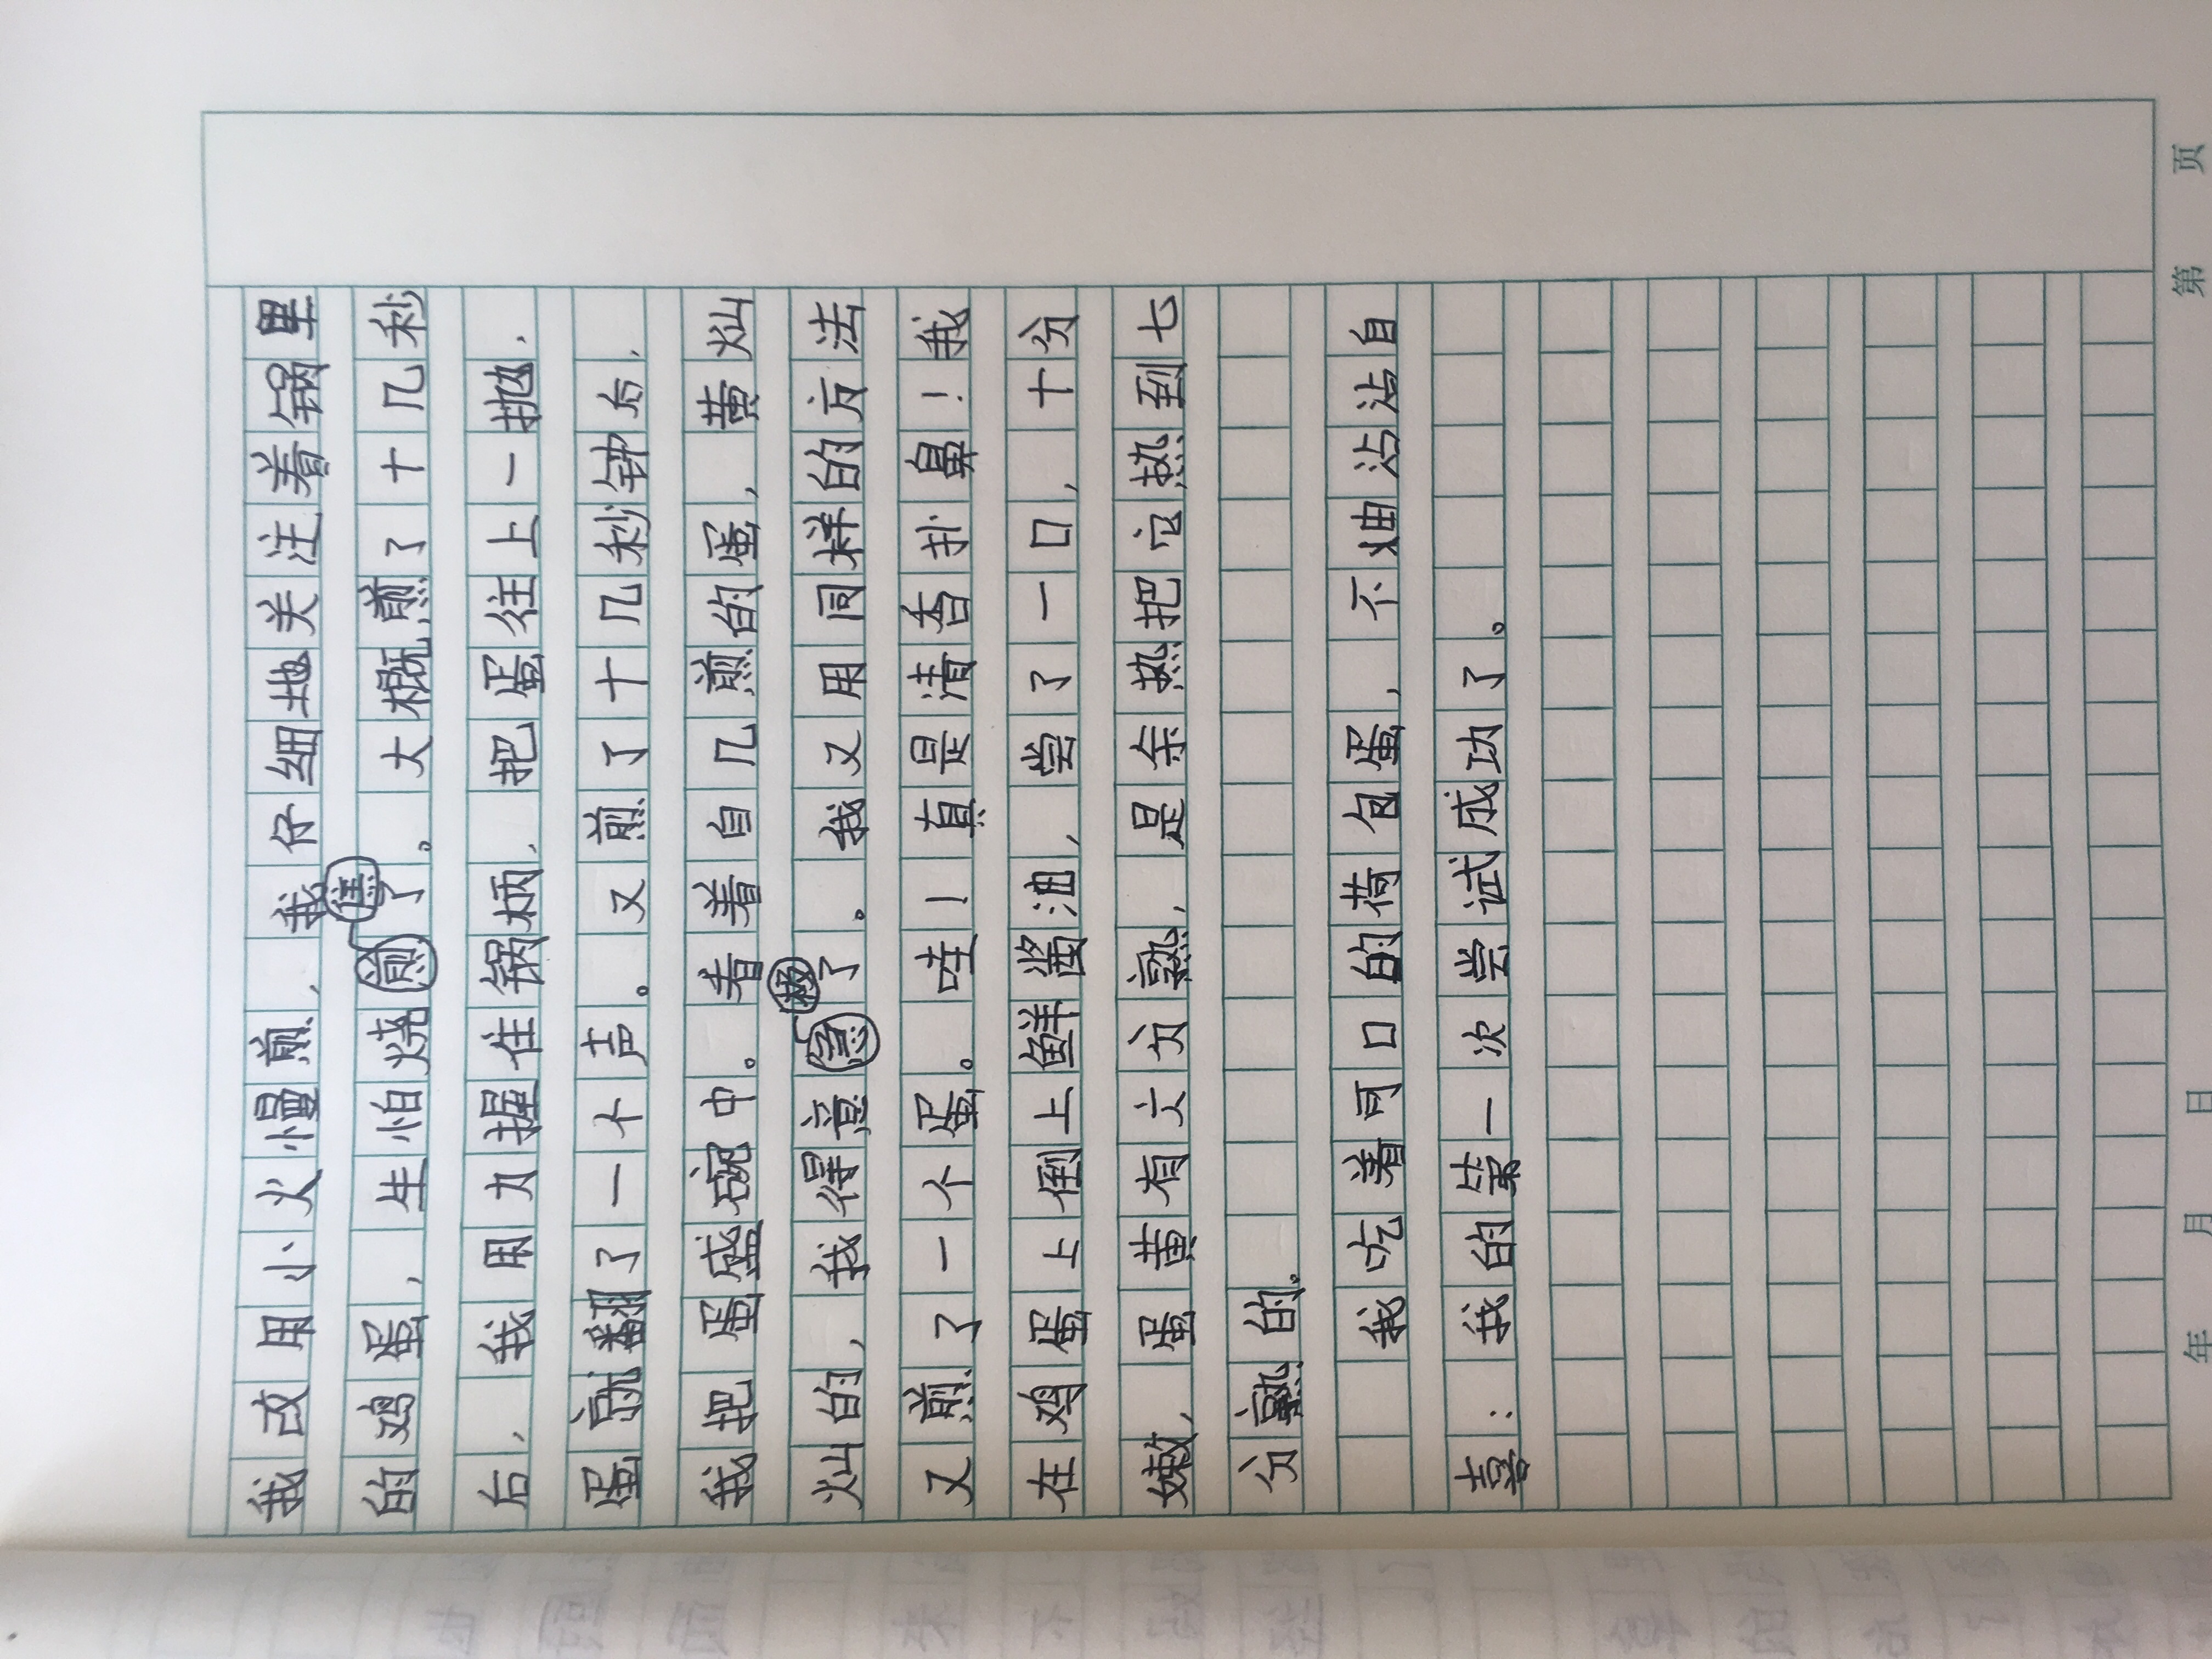 我改用小火慢煎，我仔细地关注着锅里
的鸡蛋，生怕烧焦了。大概煎了十几秒
后，我用力握住锅柄，把蛋往上一抛，
蛋就翻了一个声。又煎了十几秒钟后，
我把蛋盛碗中。看着自几煎的蛋，黄灿
灿的，我得意极了。我又用同样的方法
又煎了一个蛋。哇！真是清香扑鼻！我
在鸡蛋上倒上鲜酱油，尝了一口，十分
嫩，蛋黄有六分熟，是余热把它热到七
分熟的。
我吃着可口的荷包蛋，不由沾沾自
喜：我的第一次尝试成功了。
年 月 日 第 页